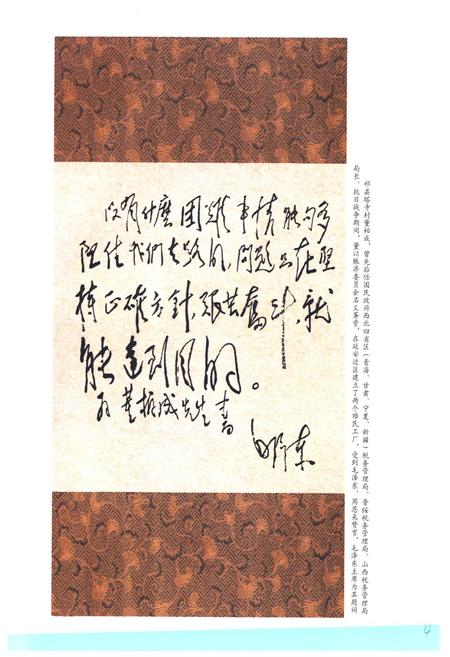 没有什麼困難事情能夠
阻住我們去路的,問題只在堅
持正確方針,艱苦奮斗,就
能達到目的。
为董振成先生書
毛澤東
祁县塔寺村董柏成,曾先后任国民政府西北四省区(青海、甘肃、宁夏、新疆)税务管理局、晋绥税务管理局、山西税务管理局
局长。抗日战争期间,董以赈济委员会名义筹资,在延安边区建立了两个难民工厂,受到毛泽东、周恩来赞赏,毛泽东主席为其题词
4